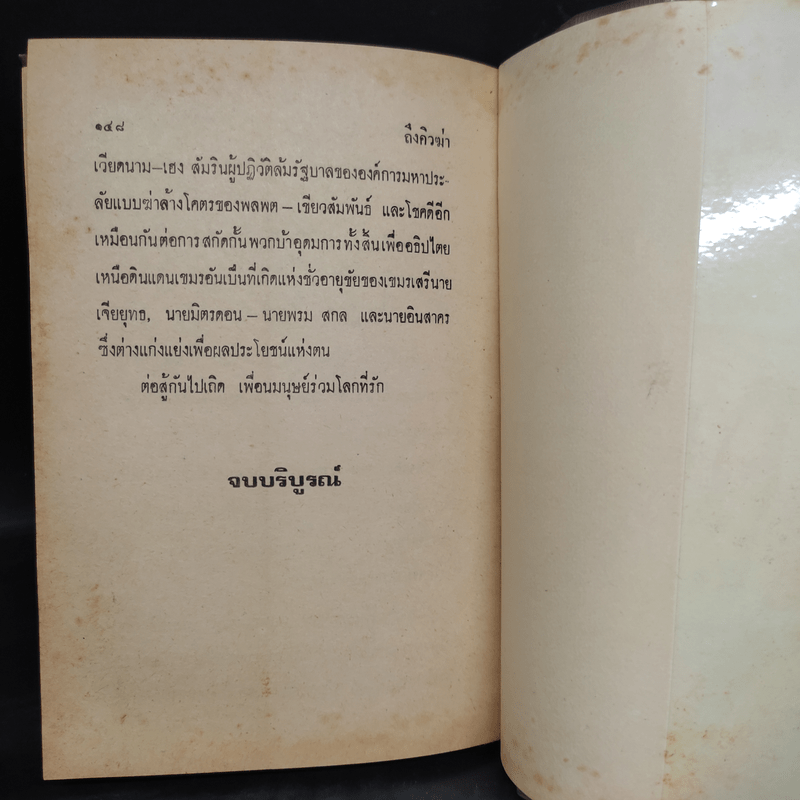 ๑๔๘
ถึงคิวฆ่า
เวียดนาม—เฮง สัมรินผู้ปฏิวัติล้มรัฐบาลขององค์การมหาประ-
ลัยแบบฆ่าล้างโคตรของพลพต — เขียวสัมพันธ์ และโชคดีอีก
เหมือนกันต่อการสกัดกั้นพวกบ้าอุดมการทั้งสิ้นเพื่ออธิปไตย
เหนือดินแดนเขมรอันเป็นที่เกิดแห่งชั่วอายุขัยของเขมรเสรีนาย
เจียยุทธ, นายมิตรดอน — นายพรม สกล และนายอินสาคร
ซึ่งต่างแก่งแย่งเพื่อผลประโยชน์แห่งตน
ต่อสู้กันไปเถิด เพื่อนมนุษย์ร่วมโลกที่รัก
จบบริบูรณ์